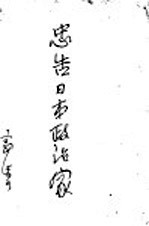 忠告日本政治家